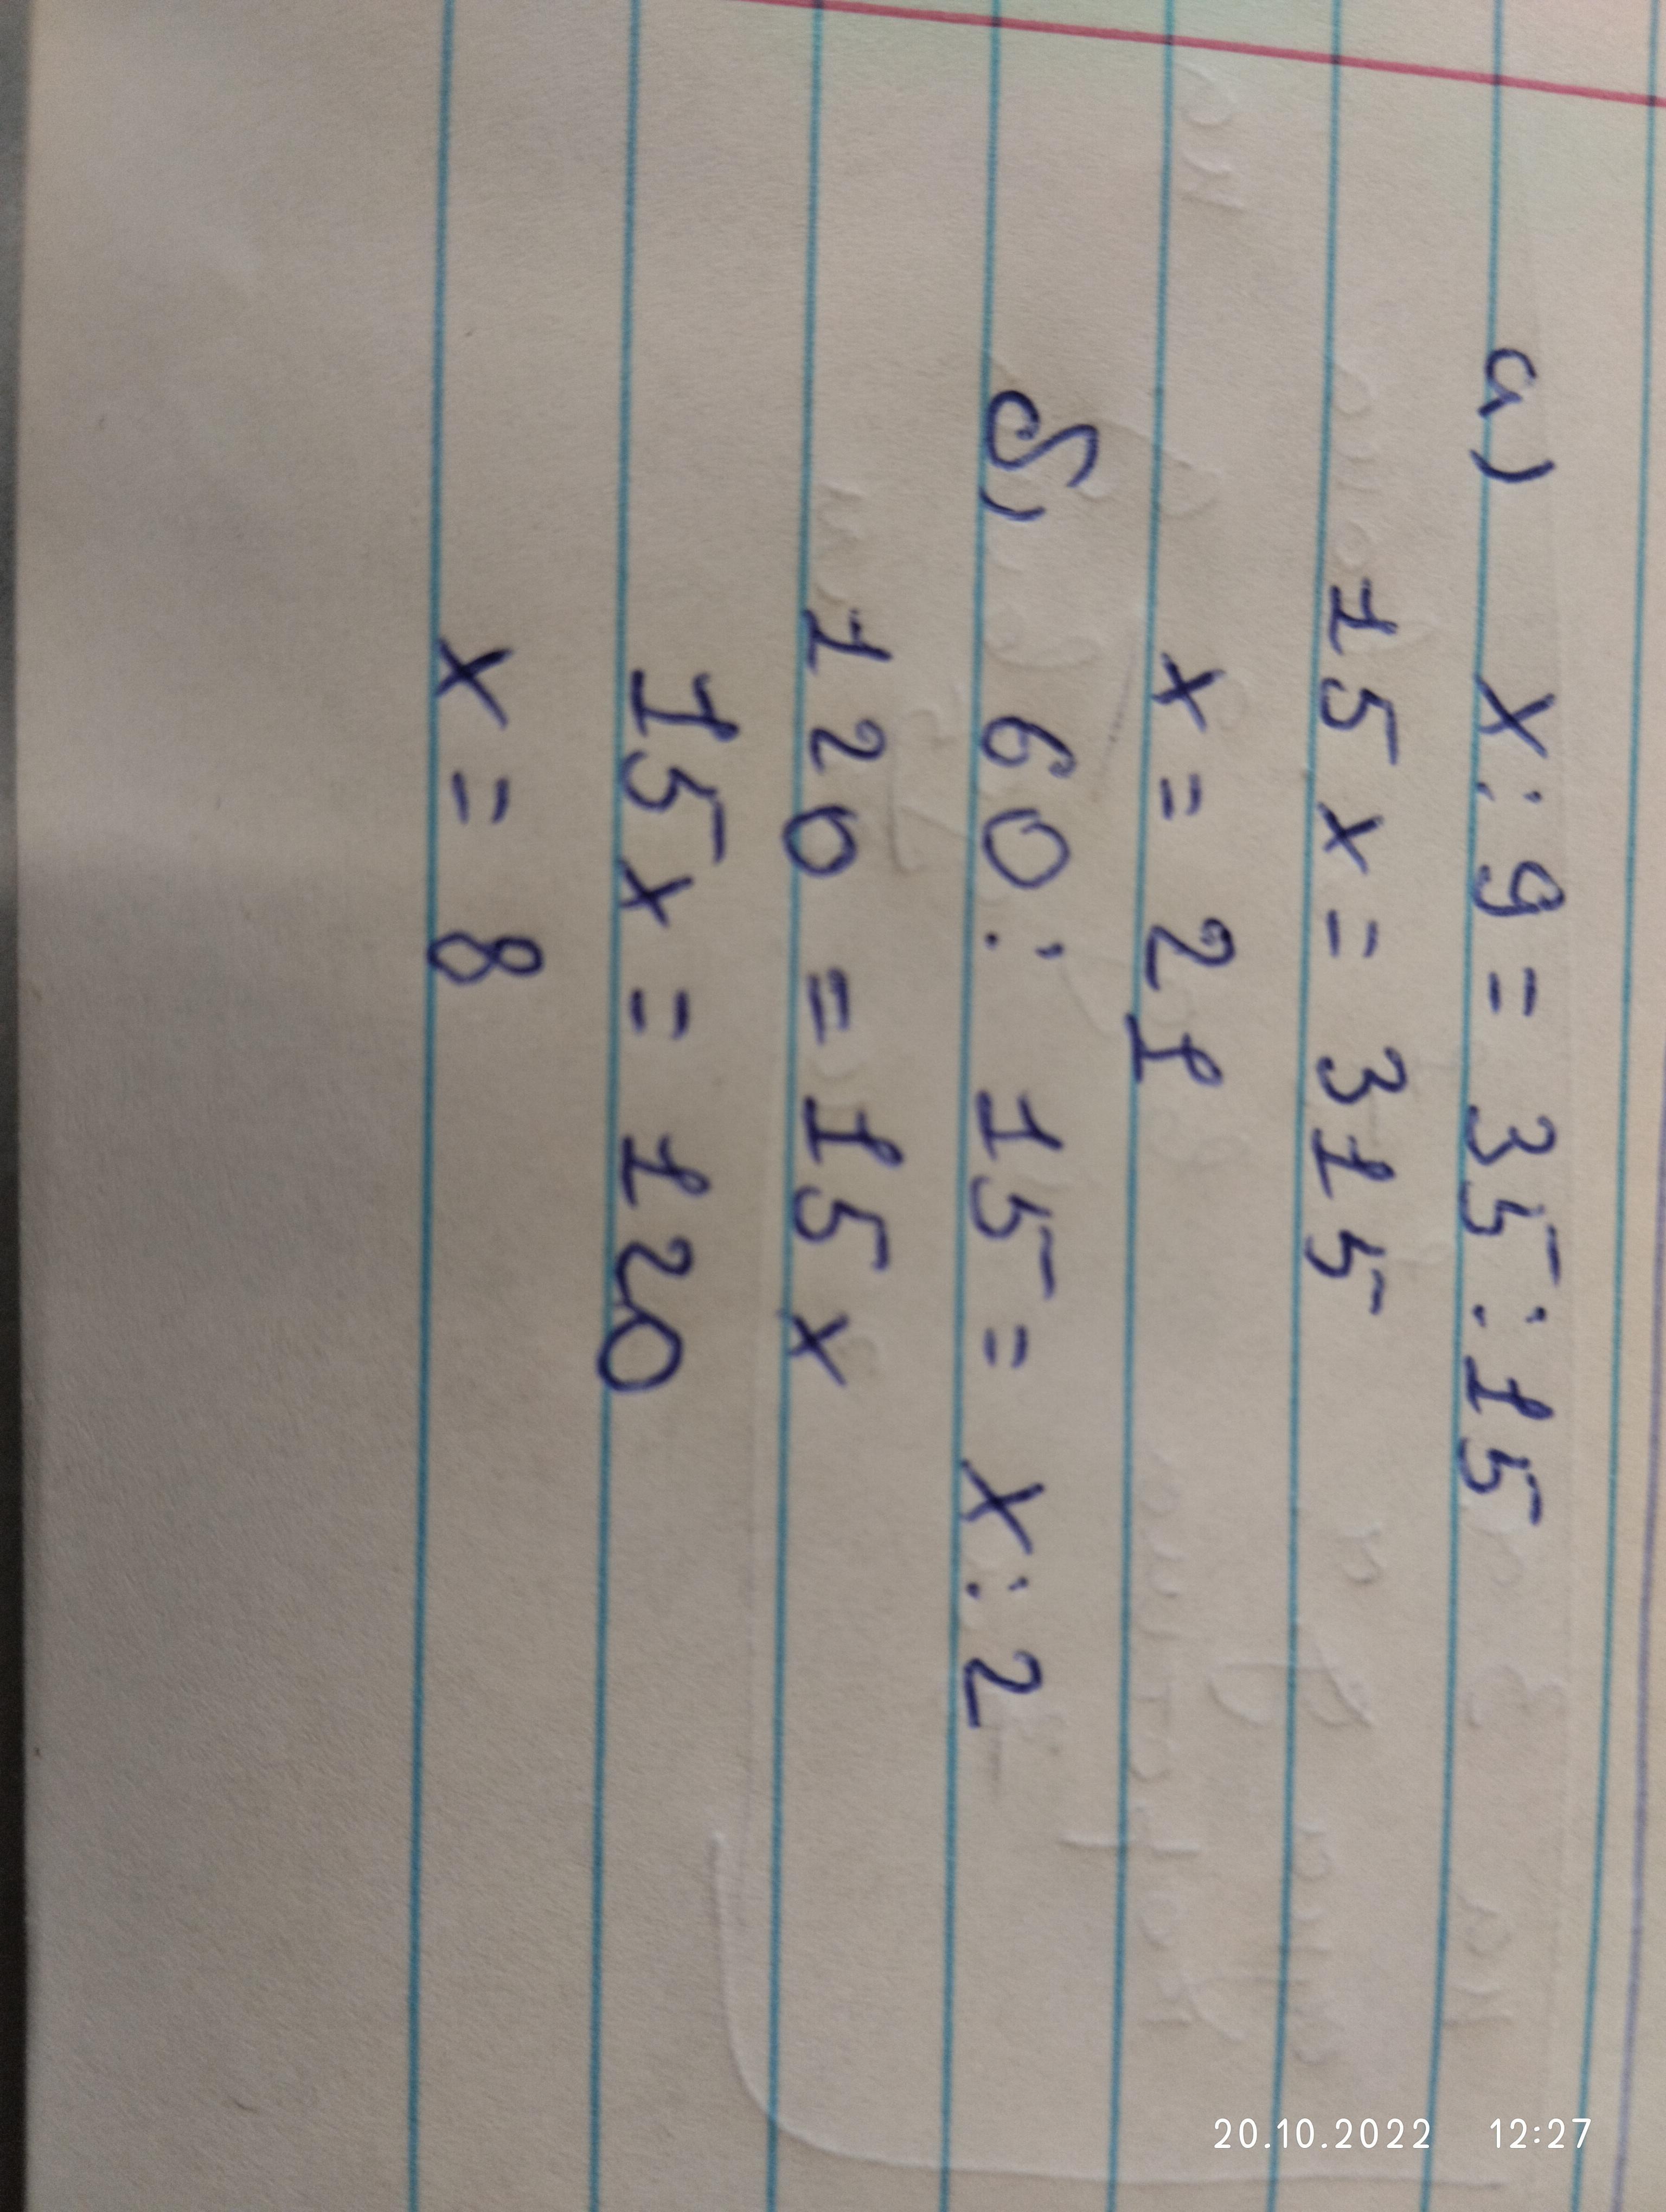 а) x : 9 = 35 : 15
15 x = 315
x = 21
б) 60 : 15 = x : 2
120 = 15 x
15 x = 120
x = 8
20.10.2022 12:27